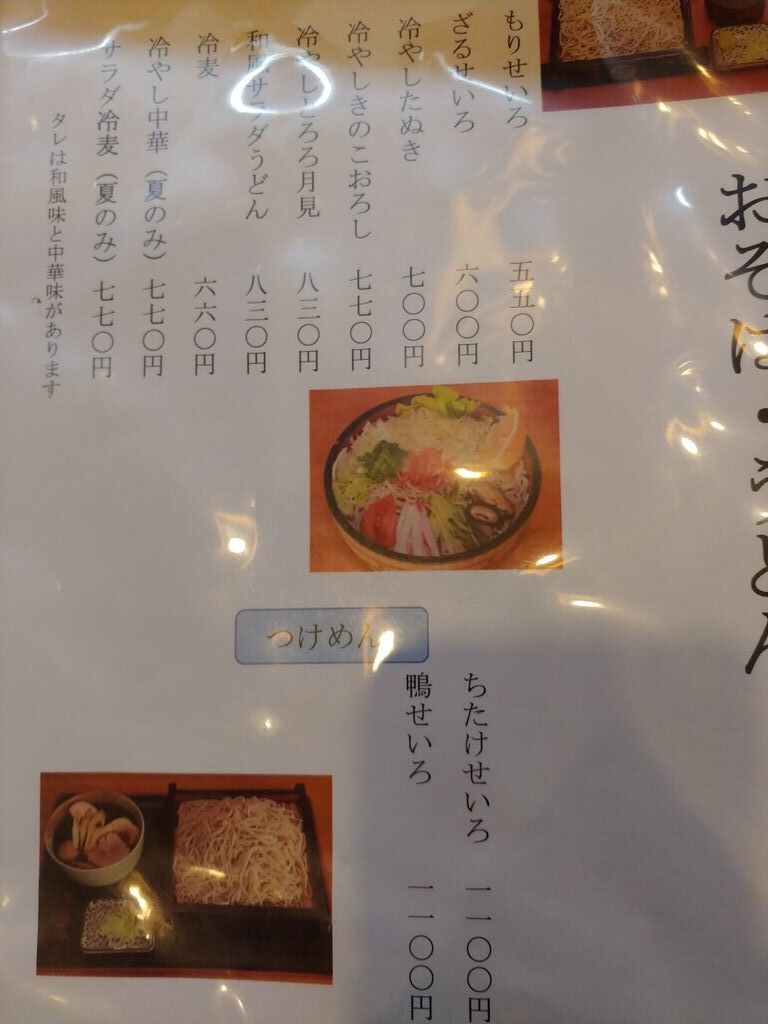 おそば・うどん
もりせいろ 五五〇円
ざるせいろ 六〇〇円
冷やしたぬき 七〇〇円
冷やしきのこおろし 七七〇円
冷やしとろろ月見 八三〇円
和風サラダうどん 八三〇円
冷麦 六六〇円
冷やし中華（夏のみ） 七七〇円
サラダ冷麦（夏のみ） 七七〇円
タレは和風味と中華味があります
つけめん
ちたけせいろ 一一〇〇円
鴨せいろ 一一〇〇円